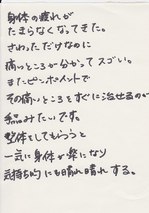 身体の疲れが
たまらなくなってきた。
さわっただけなのに
痛いところが分かってスゴい。
またピンポイントで
その痛いところをすぐに治せるのが
頼みたいです。
整体をしてもらうと
一気に身体が楽になり
気持ち的にも晴れ晴れする。